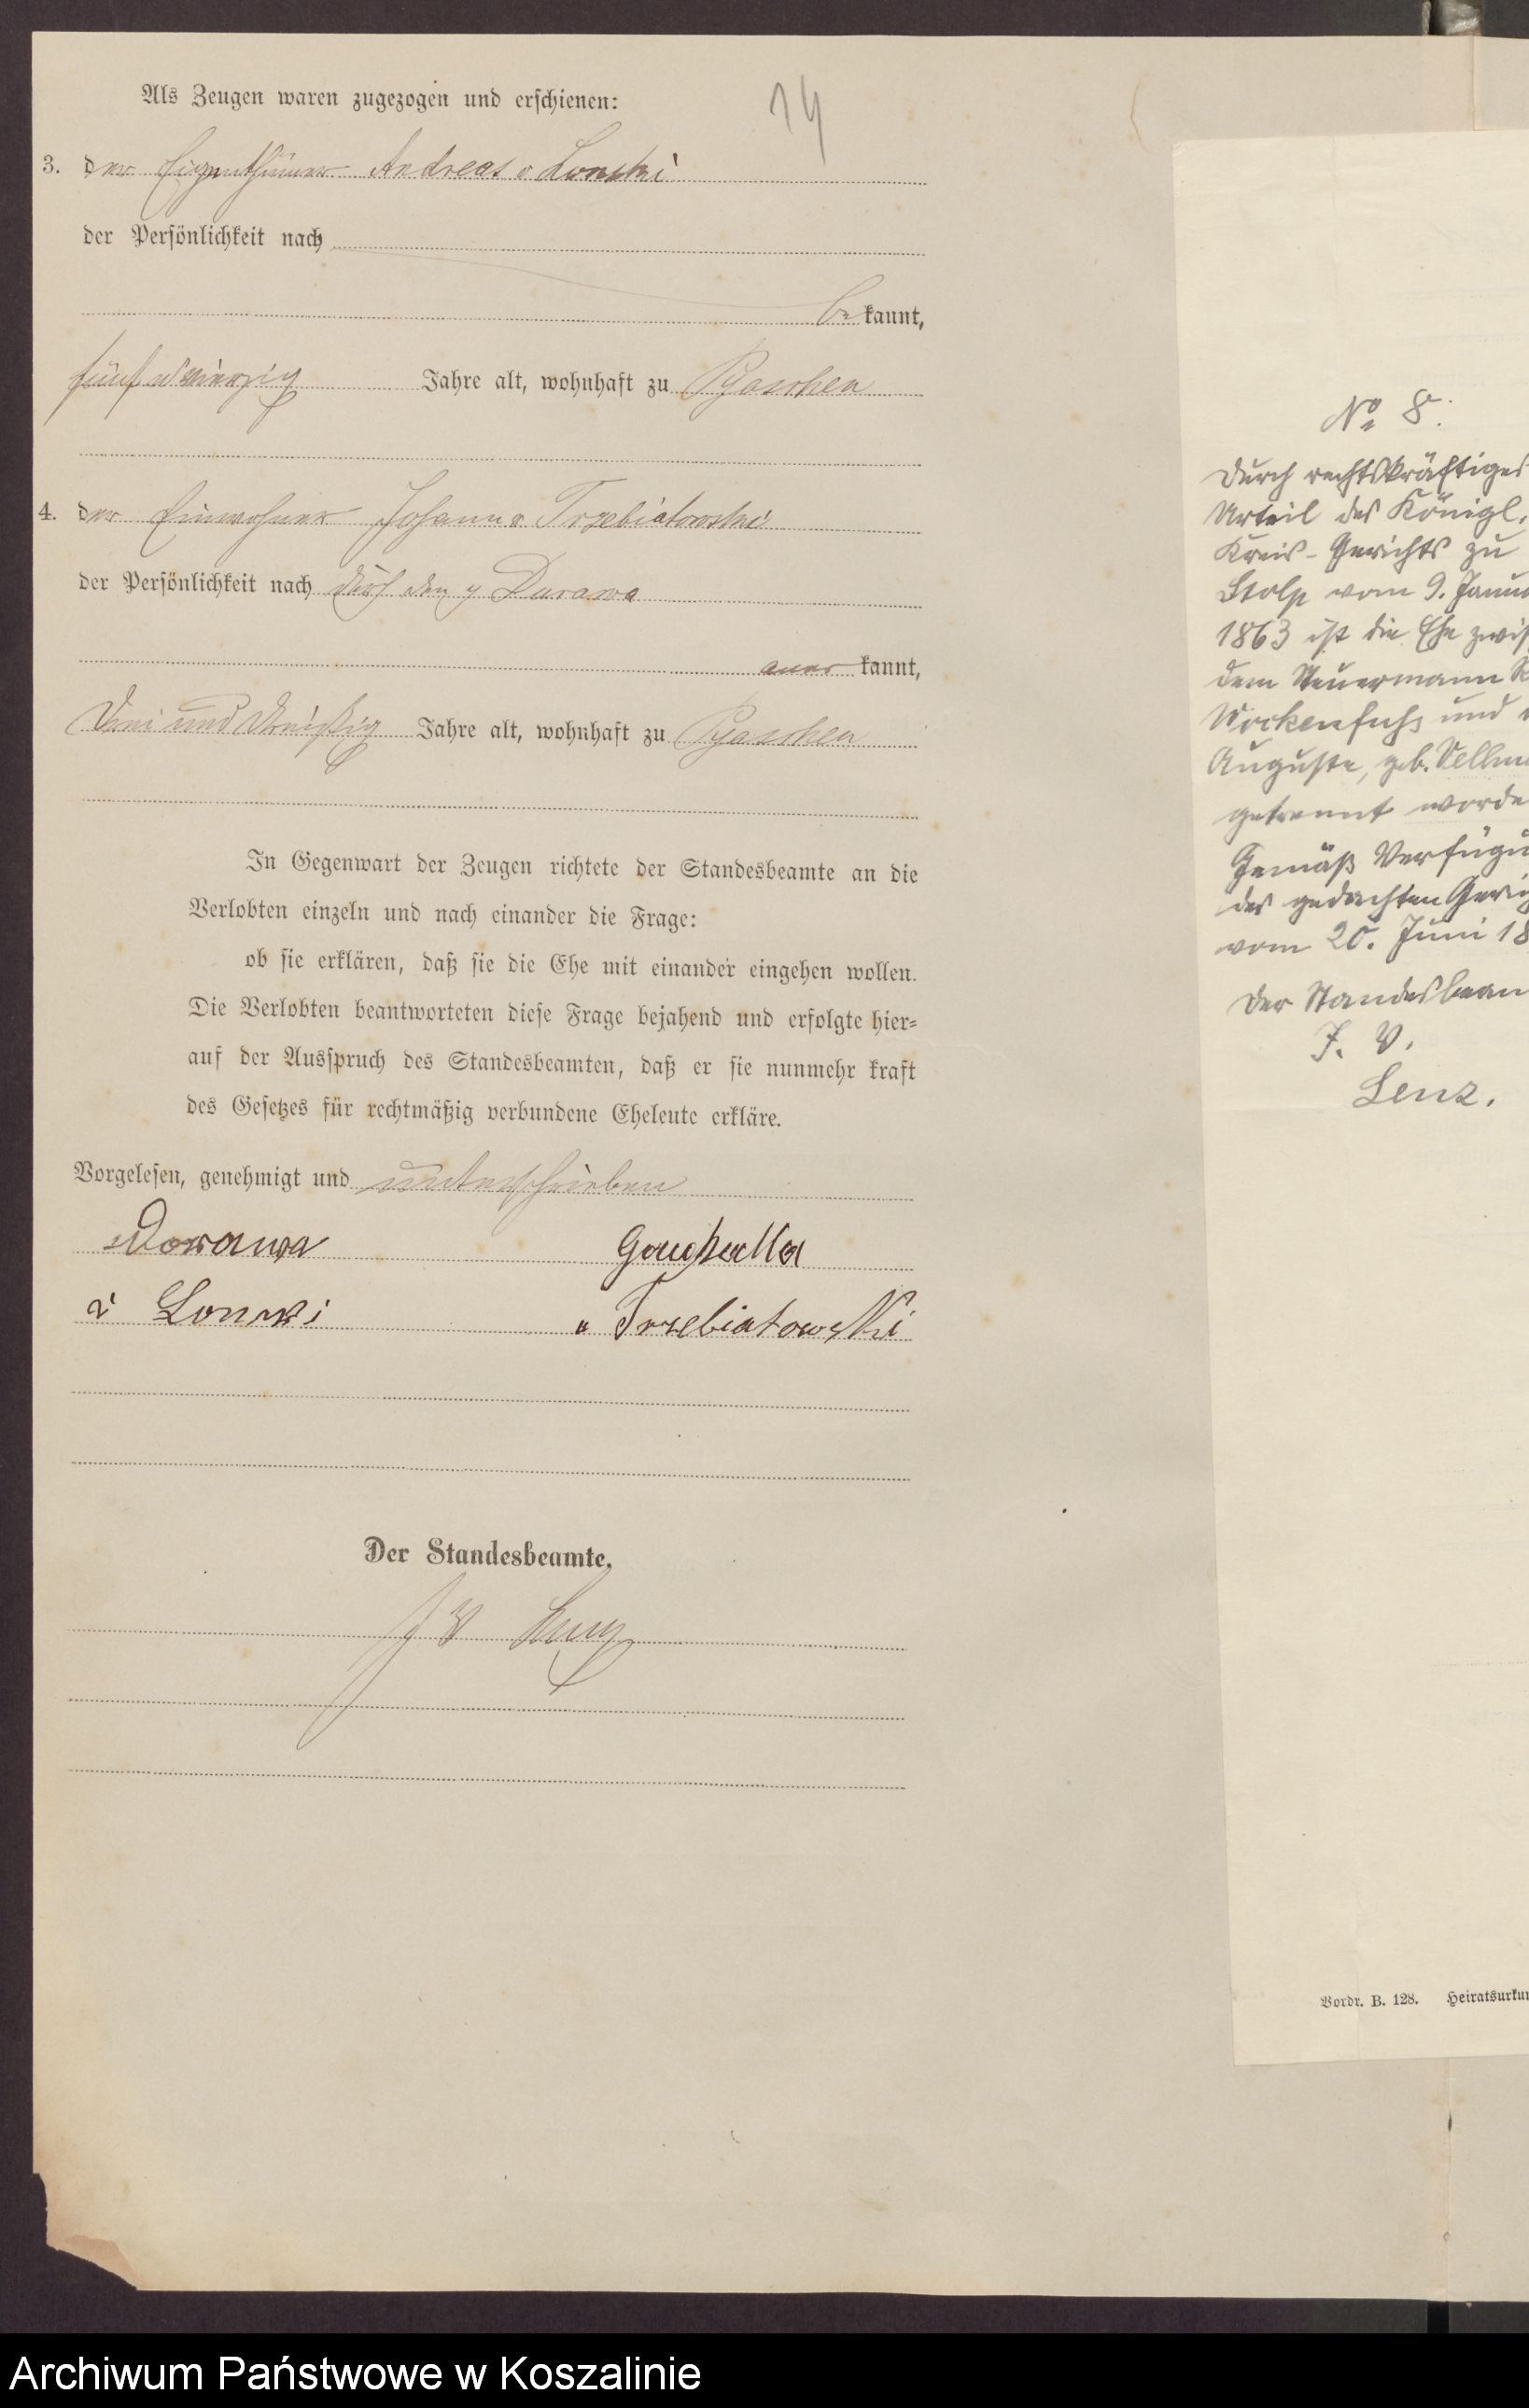 14
Als Zeugen waren zugezogen und erschienen:
3. der Eigenthümer Andreas v Lonski
der Persönlichkeit nach
be kannt,
fünf u vierzig Jahre alt, wohnhaft zu Pyaschen
4. der Einwohner Johann v Trzebiatowski
der Persönlichkeit nach durch den p Darawa
aner kannt,
drei und dreißig Jahre alt, wohnhaft zu Pyaschen
In Gegenwart der Zeugen richtete der Standesbeamte an die
Verlobten einzeln und nach einander die Frage:
ob sie erklären, daß sie die Ehe mit einander eingehen wollen.
Die Verlobten beantworteten diese Frage bejahend und erfolgte hier-
auf der Ausspruch des Standesbeamten, daß er sie nunmehr kraft
des Gesetzes für rechtmäßig verbundene Eheleute erkläre.
Vorgelesen, genehmigt und unterschrieben
Dorawa
v Lonski v Trzebiatowski
Der Standesbeamte.
J V Lenz
No 8.
Durch rechtskräftiges
Urteil des Königl.
Kreis-Gerichts zu
Stolp vom 9. Janu
1863 ist die Ehe zwis
dem Steuermann
Wockenfuß und
Auguste, geb. Vellm
getrennt worde
Gemäß Verfügu
des gedachten Geri
vom 20. Juni 18
Der Standesbeam
J. V.
Lenz.
Vordr. B. 128. Heiratsurkun
Archiwum Państwowe w Koszalinie